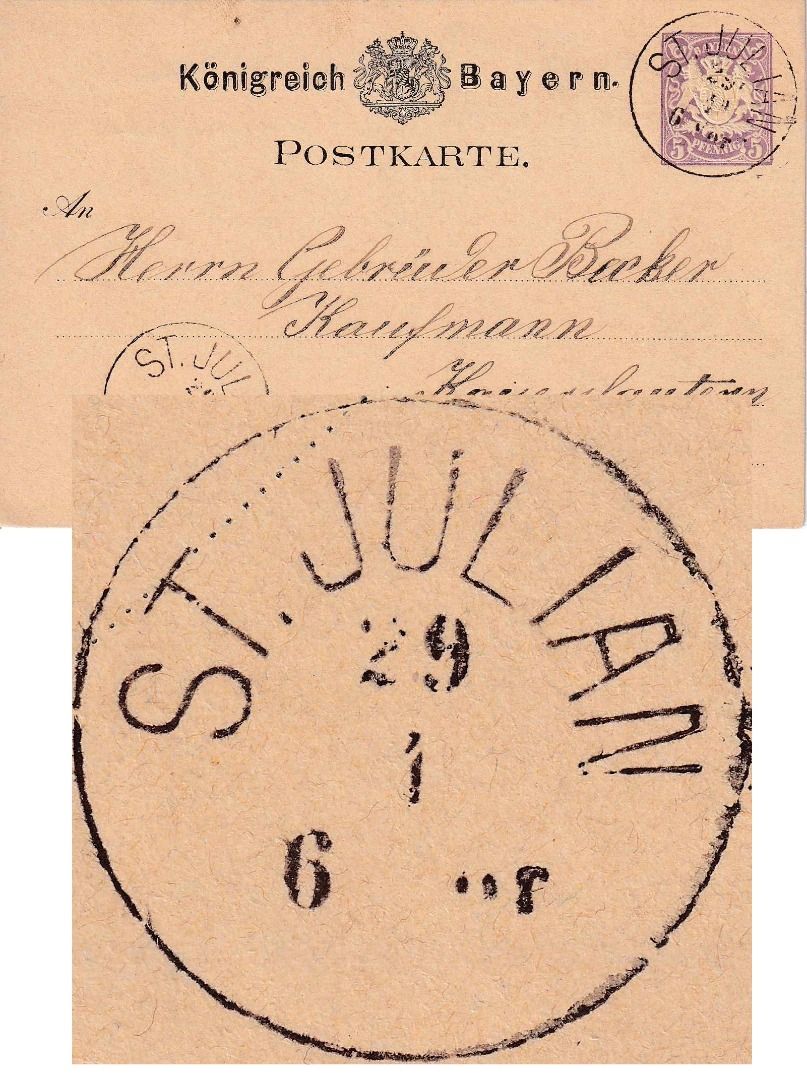 Königreich Bayern.
POSTKARTE.
ST. JULIAN
29
6 Vor
BAYERN
5 PFENNIG 5
An
Herrn Gebrüder Becker
Kaufmann
ST. JUL
ST. JULIAN
29
1
6